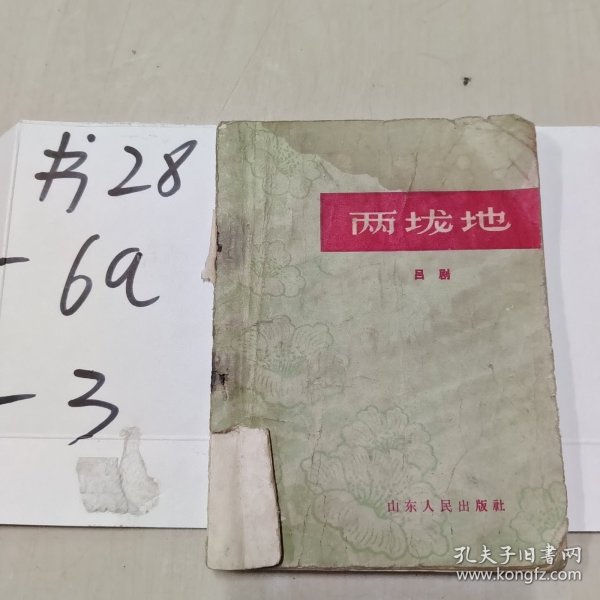 书28
- 6a
- 3
两垅地
吕剧
山东人民出版社
孔夫子旧书网
www.kongfz.com